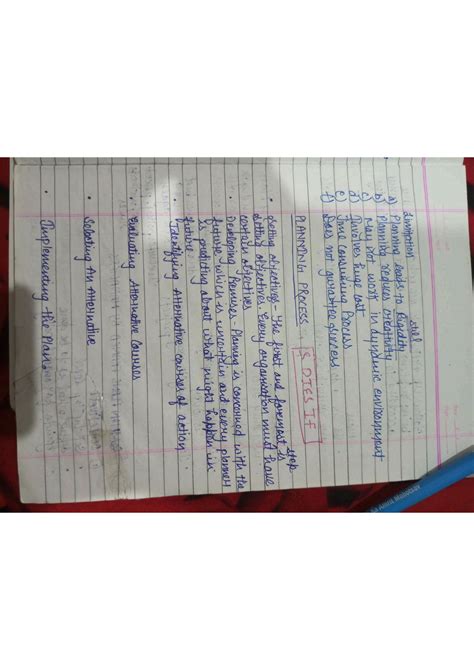 Limitation
a) Planning leads to Rigidity
b) Planning reduces creativity
c) May not work in dynamic environment
d) Involves huge cost
e) Time consuming Process
f) Does not guarantee success
PLANNING PROCESS
• Setting objectives - The first and foremost step is
setting objectives. Every organisation must have
certain objectives
• Developing Premises - Planning is concerned with the
future which is uncertain and every planner
is predicting about what might happen in
future
• Identifying Alternative courses of action
• Evaluating Alternative Courses
• Selecting An Alternative
• Implementing the Plans